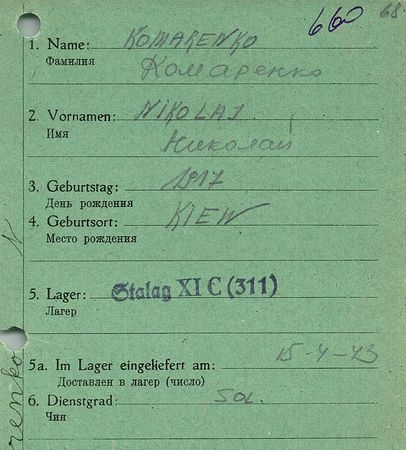 660 68
1. Name: KOMARENKO
Фамилия Комаренко
2. Vornamen: NIKOLAJ
Имя Николай
3. Geburtstag: 1917
День рождения
4. Geburtsort: KIEW
Место рождения
5. Lager: Stalag XI C (311)
Лагер
5a. Im Lager eingeliefert am: 15-4-43
Доставлен в лагер (число)
6. Dienstgrad: SOL.
Чин
renko N